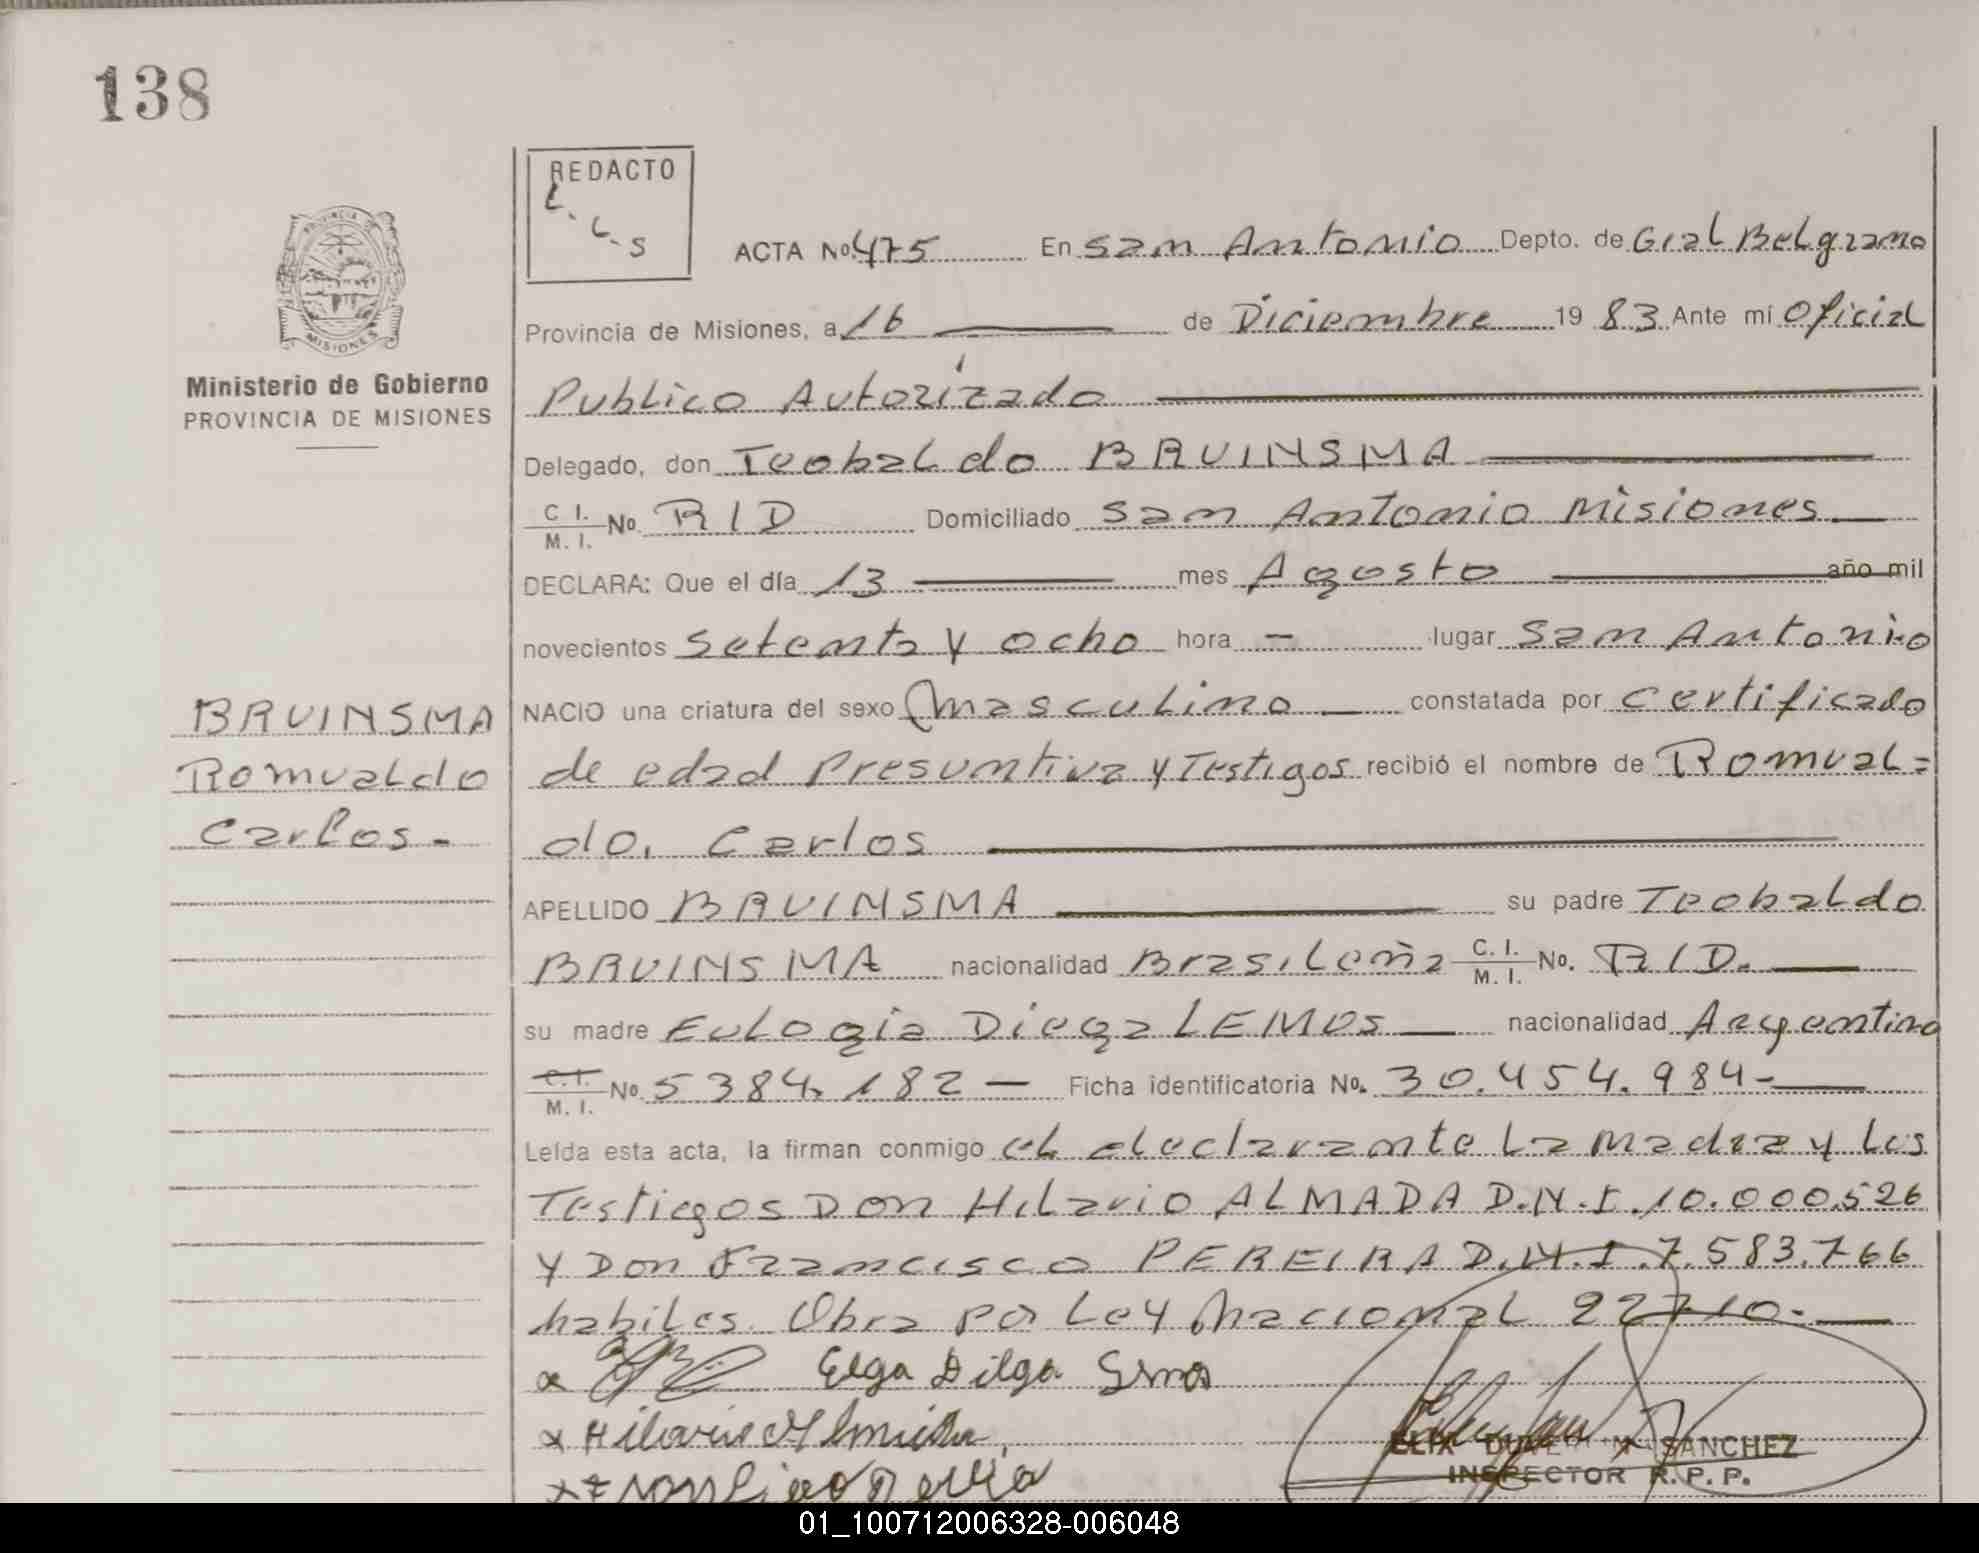 138
REDACTO
L. L. S
PROVINCIA DE
MISIONES
Ministerio de Gobierno
PROVINCIA DE MISIONES
ACTA No. 475 En San Antonio Depto. de Gral Belgrano
Provincia de Misiones, a 16 de Diciembre 19 83 Ante mi Oficial
Publico Autorizado
Delegado, don Teobaldo BRUINSMA
C I. / M. I. No. R I D Domiciliado San Antonio Misiones
DECLARA: Que el día 13 mes Agosto año mil
novecientos setenta y ocho hora - lugar San Antonio
NACIO una criatura del sexo masculino constatada por certificado
de edad Presuntiva y Testigos recibió el nombre de Romual=
do, Carlos
APELLIDO BRUINSMA su padre Teobaldo
BRUINSMA nacionalidad Brasileña C. I. / M. I. No. R I D.
su madre Eulogia Diega LEMOS nacionalidad Argentina
C. I. / M. I. No. 5384.182 - Ficha identificatoria No. 30.454.984-
Leída esta acta, la firman conmigo el declarante La madre y los
Testiegos Don Hilario ALMADA D.N.I. 10.000.526
y Don Francisco PEREIRA D.N.I. 7.583.766
habiles. Obra por Ley Nacional 22710.-
BRUINSMA
Romualdo
Carlos.-
x
x Hilario
x
SANCHEZ
INSPECTOR R. P. P.
01_100712006328-006048